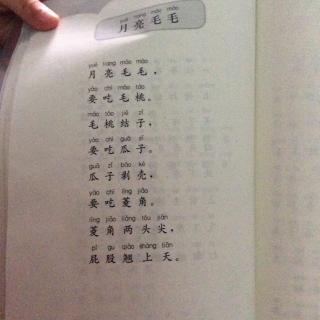 yuè liang máo máo
月亮毛毛
yuè liang máo máo
月亮毛毛，
yào chī máo táo
要吃毛桃。
máo táo jiē zǐ
毛桃结子，
yào chī guā zǐ
要吃瓜子。
guā zǐ bāo ké
瓜子剥壳，
yào chī líng jiǎo
要吃菱角。
líng jiǎo liǎng tóu jiān
菱角两头尖，
pì gu qiào shàng tiān
屁股翘上天。